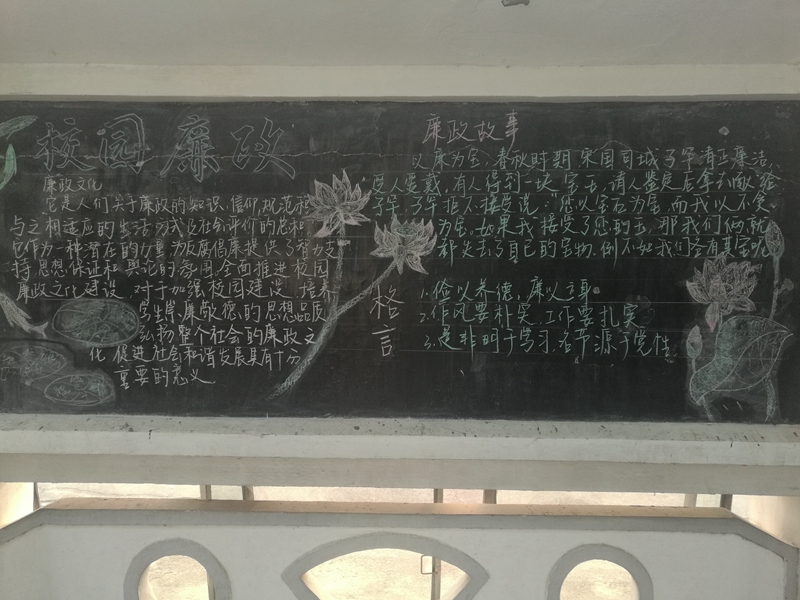 校园廉政
廉政文化
它是人们关于廉政的知识、信仰、规范和
与之相适应的生活方式及社会评价的总和
它作为一种潜在的力量为反腐倡廉提供了智力支
持思想保证和舆论的氛围,全面推进校园
廉政文化建设 对于加强校园建设、培养
学生崇廉敬德的思想品质
弘扬整个社会的廉政文
化 促进社会和谐发展具有十分
重要的意义
廉政故事
以廉为宝,春秋时期宋国司城子罕清正廉洁,
受人爱戴,有人得到一块宝玉,请人鉴定后拿去献给
子罕,子罕拒不接受说:"您以宝石为宝而我以不贪
为宝,如果我接受了您的玉,那我们俩就
都失去了自己的宝物,倒不如我们各有其宝呢
格言
1.俭以养德,廉以立身
2.作风要朴实,工作要扎实
3.是非明于学习,名节源于党性